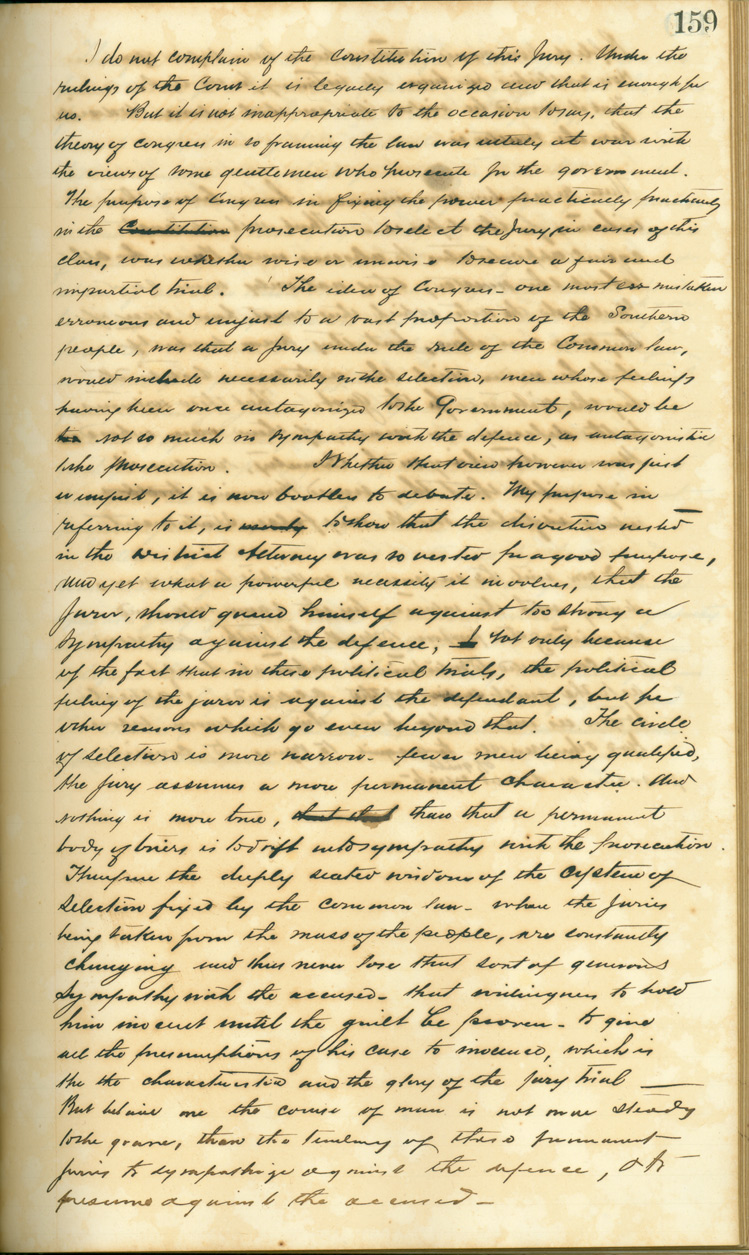 159
I do not complain of the Constitution of this Jury. Under the
rulings of the Court it is legally organized and that is enough for
us. But it is not inappropriate to the occasion to say, that the
theory of Congress in so framing the law was utterly at war with
the views of some gentlemen who prosecute for the government.
The purpose of Congress in fixing the power practically practically
in the Constitution prosecution to select the Jury in cases of this
class, was whether wise or unwise to secure a fair and
impartial trial. The idea of Congress - one most mistaken
erroneous and unjust to a vast proportion of the Southern
people, was that a Jury under the rule of the Common law,
would include necessarily in the selection, men whose feelings
having been once antagonized to the Government, would be
not so much in sympathy with the defence, as antagonistic
to the prosecution. Whether that view however was just
or unjust, it is now bootless to debate. My purpose in
referring to it, is merely to show that the discretion vested
in the District Attorney was so vested for a good purpose,
and yet what a powerful necessity it involves, that the
Juror, should guard himself against too strong a
sympathy against the defence, Not only because
of the fact that in these political trials, the political
feeling of the juror is against the defendant, but for
other reasons which go even beyond that. The circle
of selection is more narrow - fewer men being qualified,
the jury assumes a more permanent character. And
nothing is more true, that than that a permanent
body of triers is to drift into sympathy with the prosecution.
Therefore the deeply seated wisdom of the system of
selection fixed by the common law - where the juries
being taken from the mass of the people, are constantly
changing and thus never lose that sort of generous
sympathy with the accused - that willingness to hold
him innocent until the guilt be proven - to give
all the presumptions of his case to innocence, which is
the the characteristic and the glory of the jury trial —
But believe me the course of man is not more steady
to the grave, than the tendency of these permanent
juries to sympathize against the defence, & to
presume against the accused -